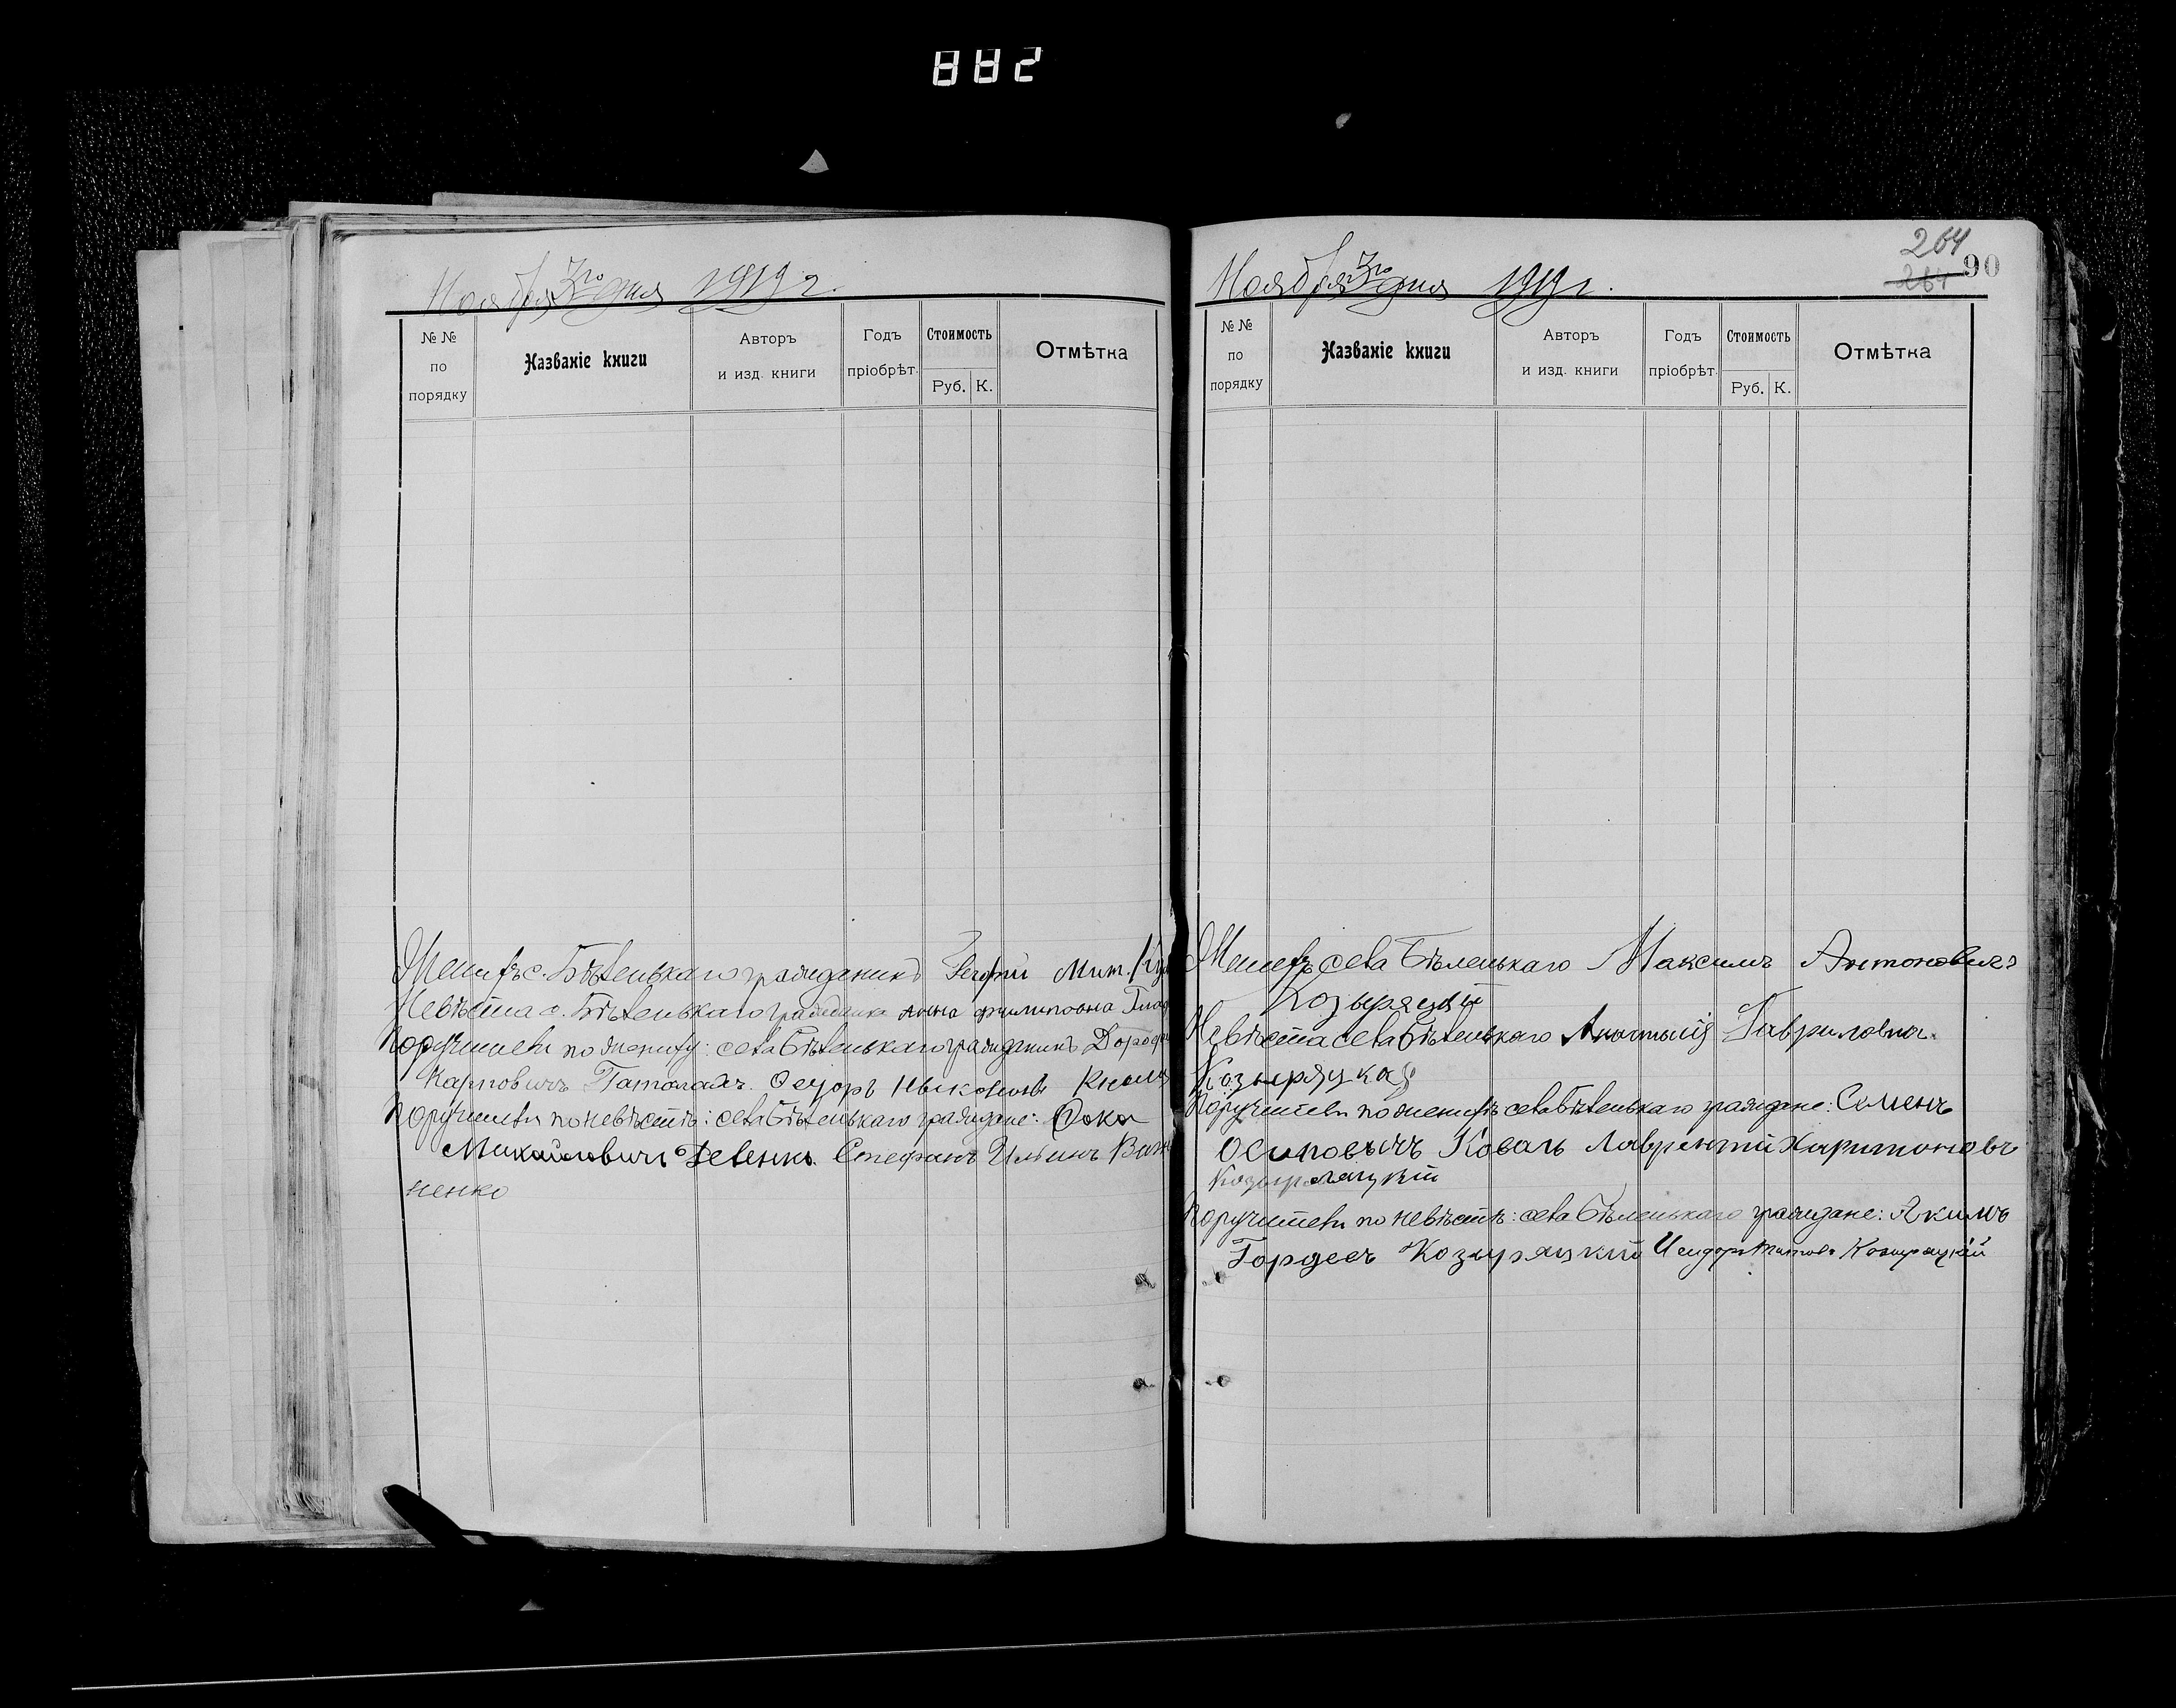 882
Ноября 3го дня 1919 г.
№ № по порядку
Названіе книги
Авторъ и изд. книги
Годъ пріобрѣт.
Стоимость
Руб. К.
Отмѣтка
Женихъ с. Бѣленькаго гражданинъ Мит.
Невѣста с. Бѣленькаго гражданка Анна Филиповна
Поручители по жениху: села Бѣленькаго гражданинъ
Карповичъ Никоновъ
Поручители по невѣстѣ: села Бѣленькаго граждане: Фока
Михайловичъ Стефанъ Ильинъ
ненко
264
264 90
Ноября 3го дня 1919 г.
№ № по порядку
Названіе книги
Авторъ и изд. книги
Годъ пріобрѣт.
Стоимость
Руб. К.
Отмѣтка
Женихъ села Бѣленькаго Максимъ Антоновичъ
Козыряцкій
Невѣста села Бѣленькаго Гавриловна
Козыряцкая
Поручители по жениху села Бѣленькаго граждане: Семенъ
Осиповичъ Коваль Лаврентій Харитоновъ
Козыряцкій
Поручители по невѣстѣ: села Бѣленькаго граждане: Якимъ
Гордеевъ Козыряцкий Титовъ Козыряцкій